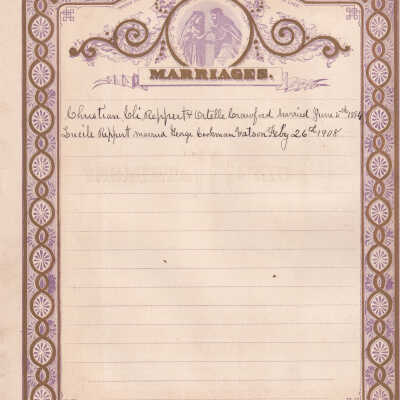 MARRIAGES.
Christian Eli Reppert & Ortelle Crawford married June
Lucile Reppert married George Cookman Watson Feby 26th 1908